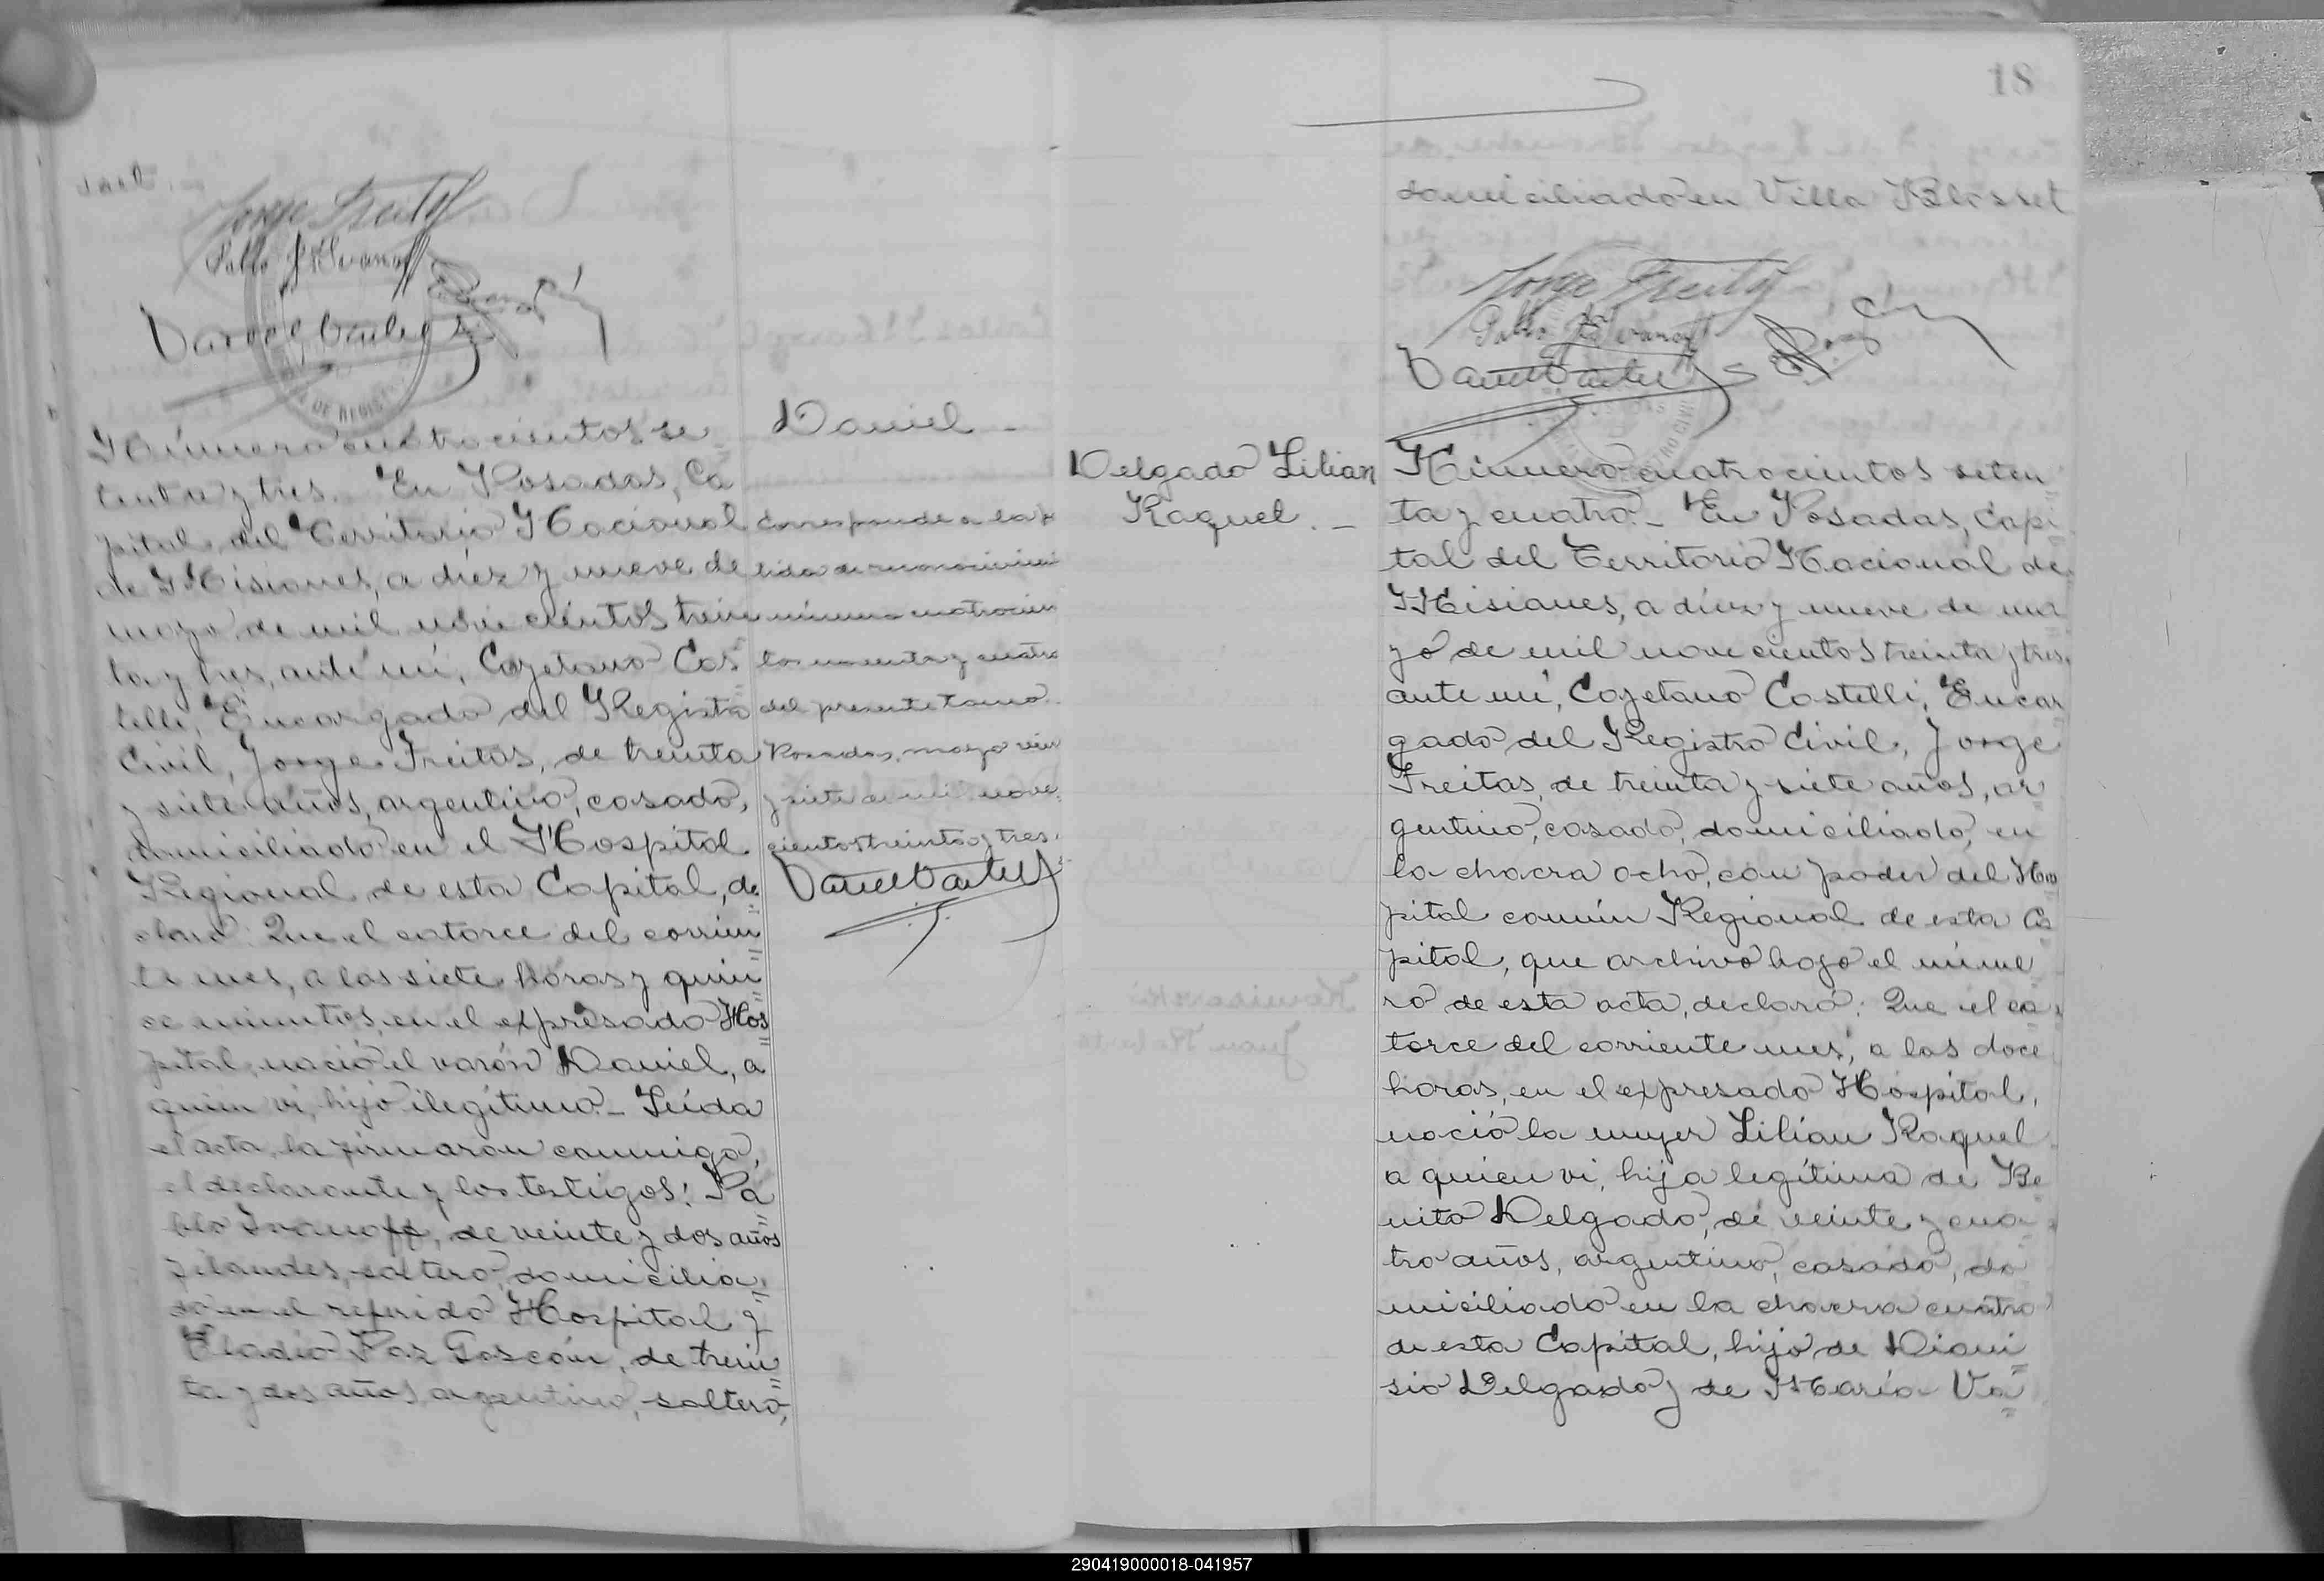 sset. —
Jorge Freitas
Pablo Ivanoff
Número cuatrocientos se
tenta y tres. En Posadas, Ca
pital del Territorio Nacional
de Misiones, a diez y nueve de
mayo de mil novecientos trein
ta y tres, ante mí, Cayetano Cas
telli, Encargado del Registro
Civil, Jorge Freitas, de treinta
y siete años, argentino, casado,
domiciliado en el Hospital
Regional de esta Capital, de
claró: Que el catorce del corrien
te mes, a las siete horas y quin
ce minutos, en el expresado Hos
pital, nació el varón Daniel, a
quien vi, hijo ilegítimo. — Leída
el acta, la firmaron conmigo,
el declarante y los testigos: Pa
blo Ivanoff, de veinte y dos años
filandes, soltero, domicilia
do en el referido Hospital y
Eladio Paz Goscón, de trein
ta y dos años, argentino, soltero,
Daniel —
Corresponde a la par
tida de reconocimien
número cuatrocien
tos noventa y cuatro
del presente tomo.
Posadas, mayo vein
y siete de mil nove
cientos treinta y tres.
18
domiciliado en Villa Blosset
Jorge Freitas
Pablo Ivanoff
Delgado Lilian
Raquel. —
Número cuatrocientos seten
ta y cuatro. — En Posadas, Capi
tal del Territorio Nacional de
Misiones, a diez y nueve de ma
yo de mil novecientos treinta y tres,
ante mí, Cayetano Castelli, Encar
gado del Registro Civil, Jorge
Freitas, de treinta y siete años, ar
gentino, casado, domiciliado, en
la chacra ocho, con poder del Hos
pital común Regional de esta Ca
pital, que archivo bajo el núme
ro de esta acta, declaró: Que el ca
torce del corriente mes, a las doce
horas, en el expresado Hospital,
nació la mujer Lilian Raquel
a quien vi, hija legítima de Be
nito Delgado, de veinte y cua
tro años, argentino, casado, do
miciliado en la chacra cuatro
de esta Capital, hijo de Dioni
sio Delgado y de María Va
290419000018-041957